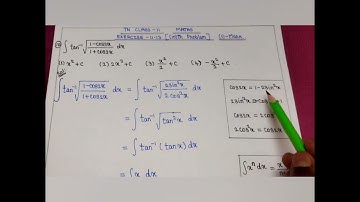 TN CLASS-11 MATHS
EXERCISE-11.13 [10th Problem] 1 Mark
∫ tan⁻¹ √(1-cos2x / 1+cos2x) dx
(1) x²+c (2) 2x²+c (3) x²/2 +c (4) -x²/2 +c
Soln:
∫ tan⁻¹ √(1-cos2x / 1+cos2x) dx = ∫ tan⁻¹ √(2sin²x / 2cos²x) dx
= ∫ tan⁻¹ √(tan²x) dx
= ∫ tan⁻¹ (tanx) dx
= ∫ x dx
cos2x = 1-2sin²x
2sin²x =
cos2x = 2cos²
2cos²x = cos2x
∫ xⁿ dx =